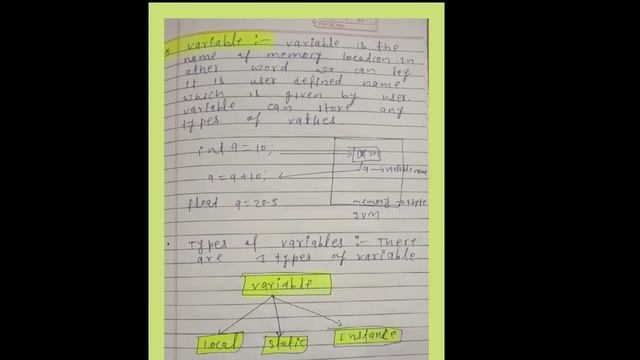 variable :- variable is the
name of memory location. In
other word we can say
it is user defined name
which is given by user.
variable can store any
types of values.
int a = 10;
a = a + 10;
a → variable name
float a = 20.5
memory
JVM
• Types of variables :- There
are 3 types of variable.
variable
Local
Static
Instance